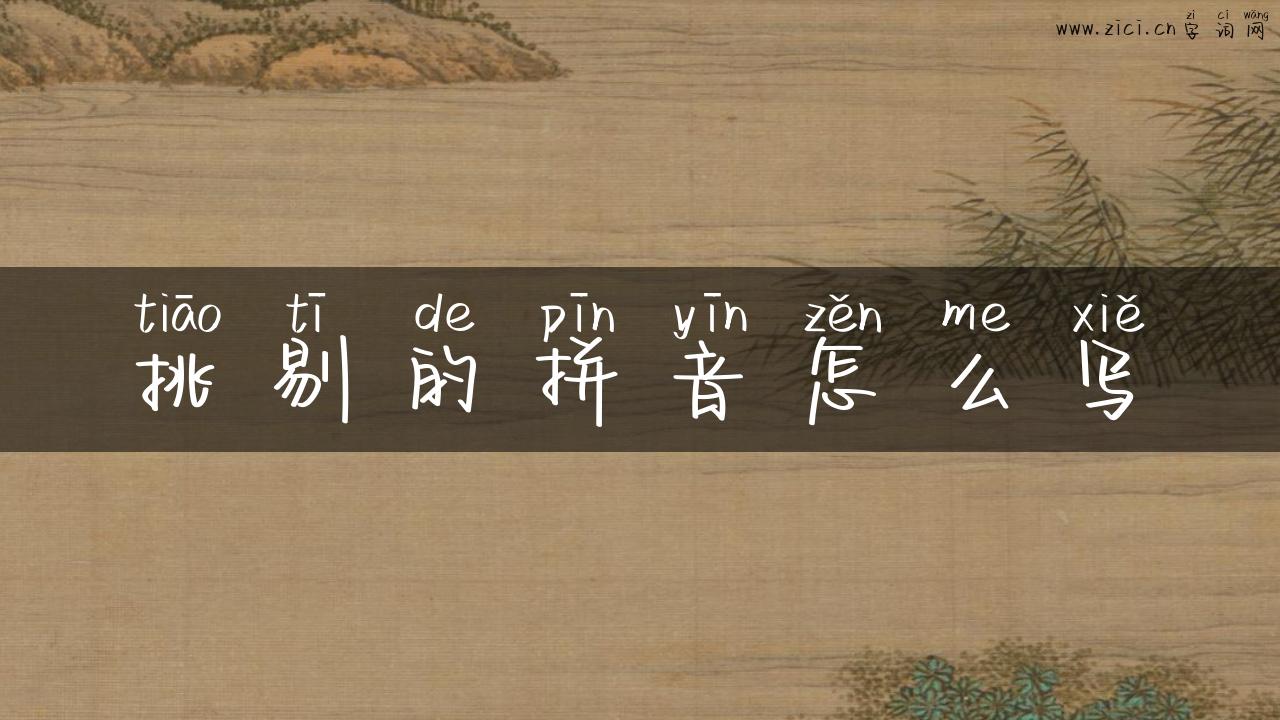 zì cí wǎng
www.zici.cn 字词网
tiāo tī de pīn yīn zěn me xiě
挑剔的拼音怎么写